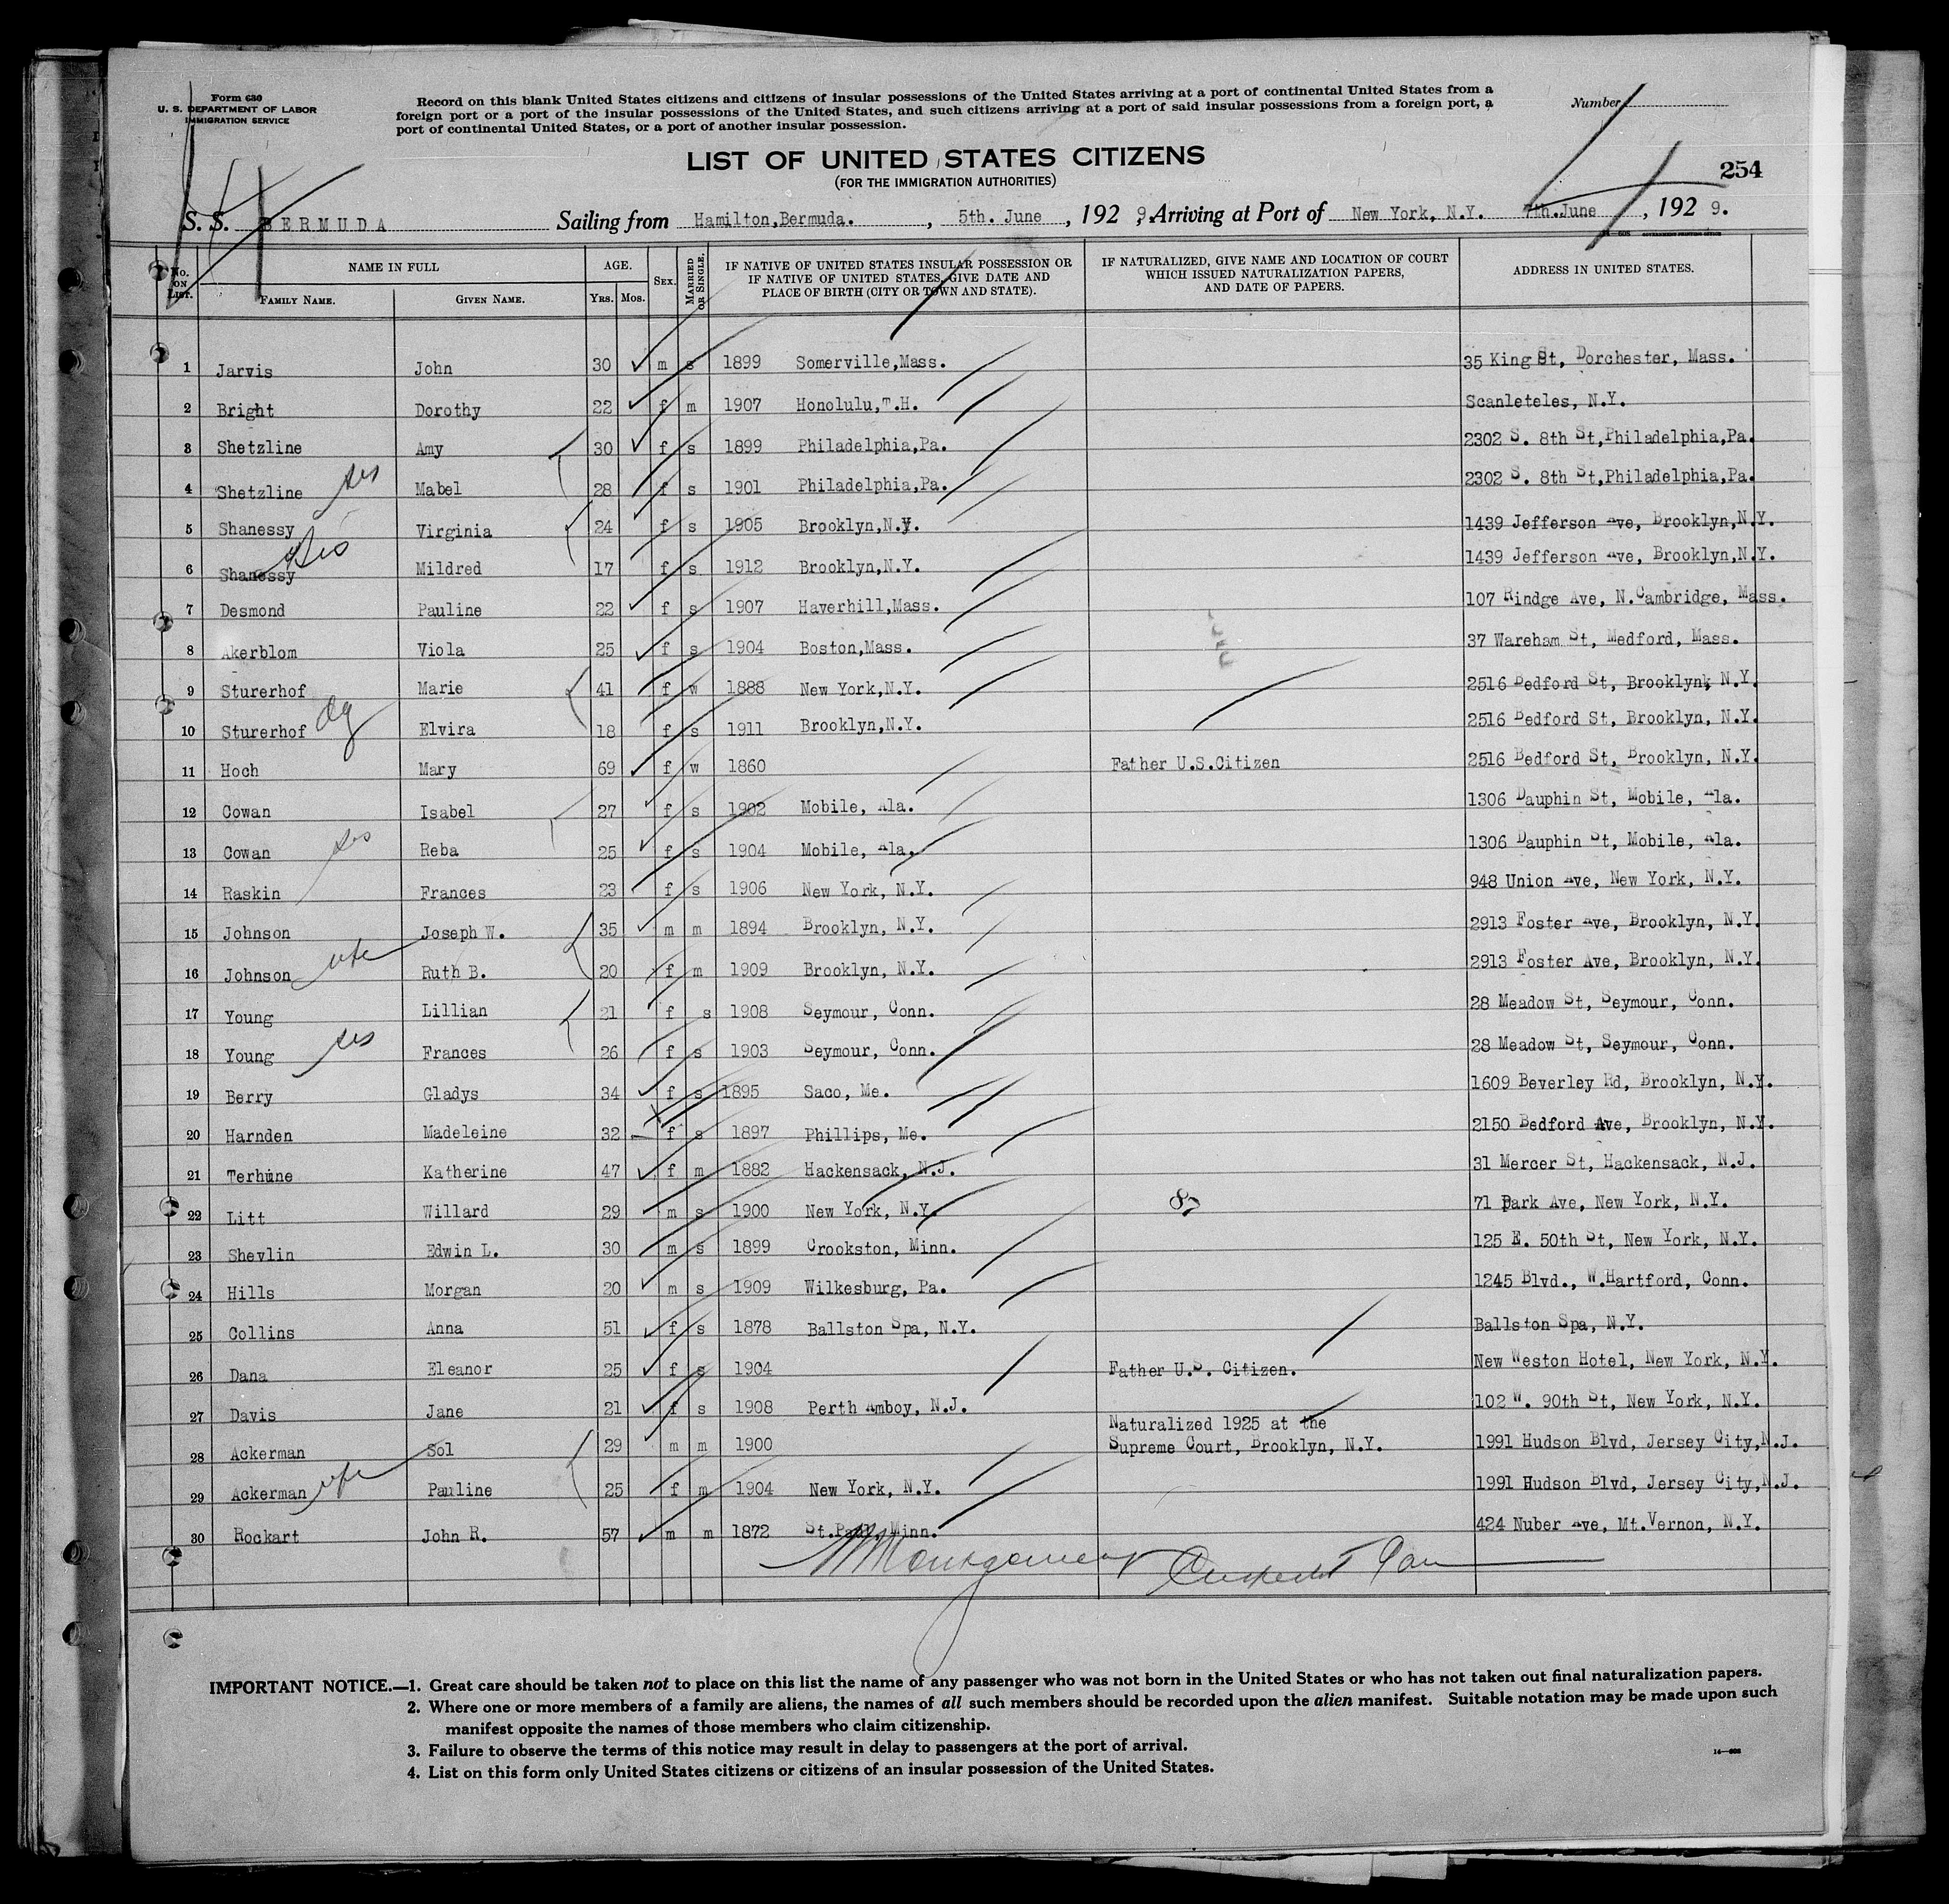 Form 630
U. S. DEPARTMENT OF LABOR
IMMIGRATION SERVICE
Record on this blank United States citizens and citizens of insular possessions of the United States arriving at a port of continental United States from a
foreign port or a port of the insular possessions of the United States, and such citizens arriving at a port of said insular possessions from a foreign port, a
port of continental United States, or a port of another insular possession.
Number
LIST OF UNITED STATES CITIZENS
(FOR THE IMMIGRATION AUTHORITIES)
254
S. S. BERMUDA Sailing from Hamilton,Bermuda. , 5th. June , 192 9, Arriving at Port of New York, N.Y. 7th.June , 192 9.
No. ON LIST. NAME IN FULL FAMILY NAME. GIVEN NAME. AGE. YRS. MOS. SEX. MARRIED OR SINGLE. IF NATIVE OF UNITED STATES INSULAR POSSESSION OR IF NATIVE OF UNITED STATES, GIVE DATE AND PLACE OF BIRTH (CITY OR TOWN AND STATE). IF NATURALIZED, GIVE NAME AND LOCATION OF COURT WHICH ISSUED NATURALIZATION PAPERS, AND DATE OF PAPERS. ADDRESS IN UNITED STATES.
1 Jarvis John 30 m s 1899 Somerville,Mass. 35 King St, Dorchester, Mass.
2 Bright Dorothy 22 f m 1907 Honolulu,T.H. Scanleteles, N.Y.
3 Shetzline Amy 30 f s 1899 Philadelphia,Pa. 2302 S. 8th St,Philadelphia,Pa.
4 Shetzline sis Mabel 28 f s 1901 Philadelphia,Pa. 2302 S. 8th St,Philadelphia,Pa.
5 Shanessy Virginia 24 f s 1905 Brooklyn,N.Y. 1439 Jefferson Ave, Brooklyn,N.Y.
6 Shanessy sis Mildred 17 f s 1912 Brooklyn,N.Y. 1439 Jefferson Ave, Brooklyn,N.Y.
7 Desmond Pauline 22 f s 1907 Haverhill,Mass. 107 Rindge Ave, N.Cambridge, Mass.
8 Akerblom Viola 25 f s 1904 Boston,Mass. 37 Wareham St, Medford, Mass.
9 Sturerhof Marie 41 f w 1888 New York,N.Y. 2516 Bedford St, Brooklyn, N.Y.
10 Sturerhof dg Elvira 18 f s 1911 Brooklyn,N.Y. 2516 Bedford St, Brooklyn, N.Y.
11 Hoch Mary 69 f w 1860 Father U.S.Citizen 2516 Bedford St, Brooklyn, N.Y.
12 Cowan Isabel 27 f s 1902 Mobile, Ala. 1306 Dauphin St, Mobile, Ala.
13 Cowan sis Reba 25 f s 1904 Mobile, Ala. 1306 Dauphin St, Mobile, Ala.
14 Raskin Frances 23 f s 1906 New York, N.Y. 948 Union Ave, New York, N.Y.
15 Johnson Joseph W. 35 m m 1894 Brooklyn, N.Y. 2913 Foster Ave, Brooklyn, N.Y.
16 Johnson wfe Ruth B. 20 f m 1909 Brooklyn, N.Y. 2913 Foster Ave, Brooklyn, N.Y.
17 Young Lillian 21 f s 1908 Seymour, Conn. 28 Meadow St, Seymour, Conn.
18 Young sis Frances 26 f s 1903 Seymour, Conn. 28 Meadow St, Seymour, Conn.
19 Berry Gladys 34 f s 1895 Saco, Me. 1609 Beverley Rd, Brooklyn, N.Y.
20 Harnden Madeleine 32 f s 1897 Phillips, Me. 2150 Bedford Ave, Brooklyn, N.Y.
21 Terhune Katherine 47 f m 1882 Hackensack, N.J. 31 Mercer St, Hackensack, N.J.
22 Litt Willard 29 m s 1900 New York, N.Y. 71 Park Ave, New York, N.Y.
23 Shevlin Edwin L. 30 m s 1899 Crookston, Minn. 125 E. 50th St, New York, N.Y.
24 Hills Morgan 20 m s 1909 Wilkesburg, Pa. 1245 Blvd., W.Hartford, Conn.
25 Collins Anna 51 f s 1878 Ballston Spa, N.Y. Ballston Spa, N.Y.
26 Dana Eleanor 25 f s 1904 Father U.S. Citizen. New Weston Hotel, New York, N.Y.
27 Davis Jane 21 f s 1908 Perth Amboy, N.J. 102 W. 90th St, New York, N.Y.
28 Ackerman Sol 29 m m 1900 Naturalized 1925 at the Supreme Court, Brooklyn, N.Y. 1991 Hudson Blvd, Jersey City,N.J.
29 Ackerman wfe Pauline 25 f m 1904 New York, N.Y. 1991 Hudson Blvd, Jersey City,N.J.
30 Rockart John R. 57 m m 1872 St.Paul, Minn. 424 Nuber Ave, Mt.Vernon, N.Y.
Montgomery
IMPORTANT NOTICE.—1. Great care should be taken not to place on this list the name of any passenger who was not born in the United States or who has not taken out final naturalization papers.
2. Where one or more members of a family are aliens, the names of all such members should be recorded upon the alien manifest. Suitable notation may be made upon such
manifest opposite the names of those members who claim citizenship.
3. Failure to observe the terms of this notice may result in delay to passengers at the port of arrival.
4. List on this form only United States citizens or citizens of an insular possession of the United States.